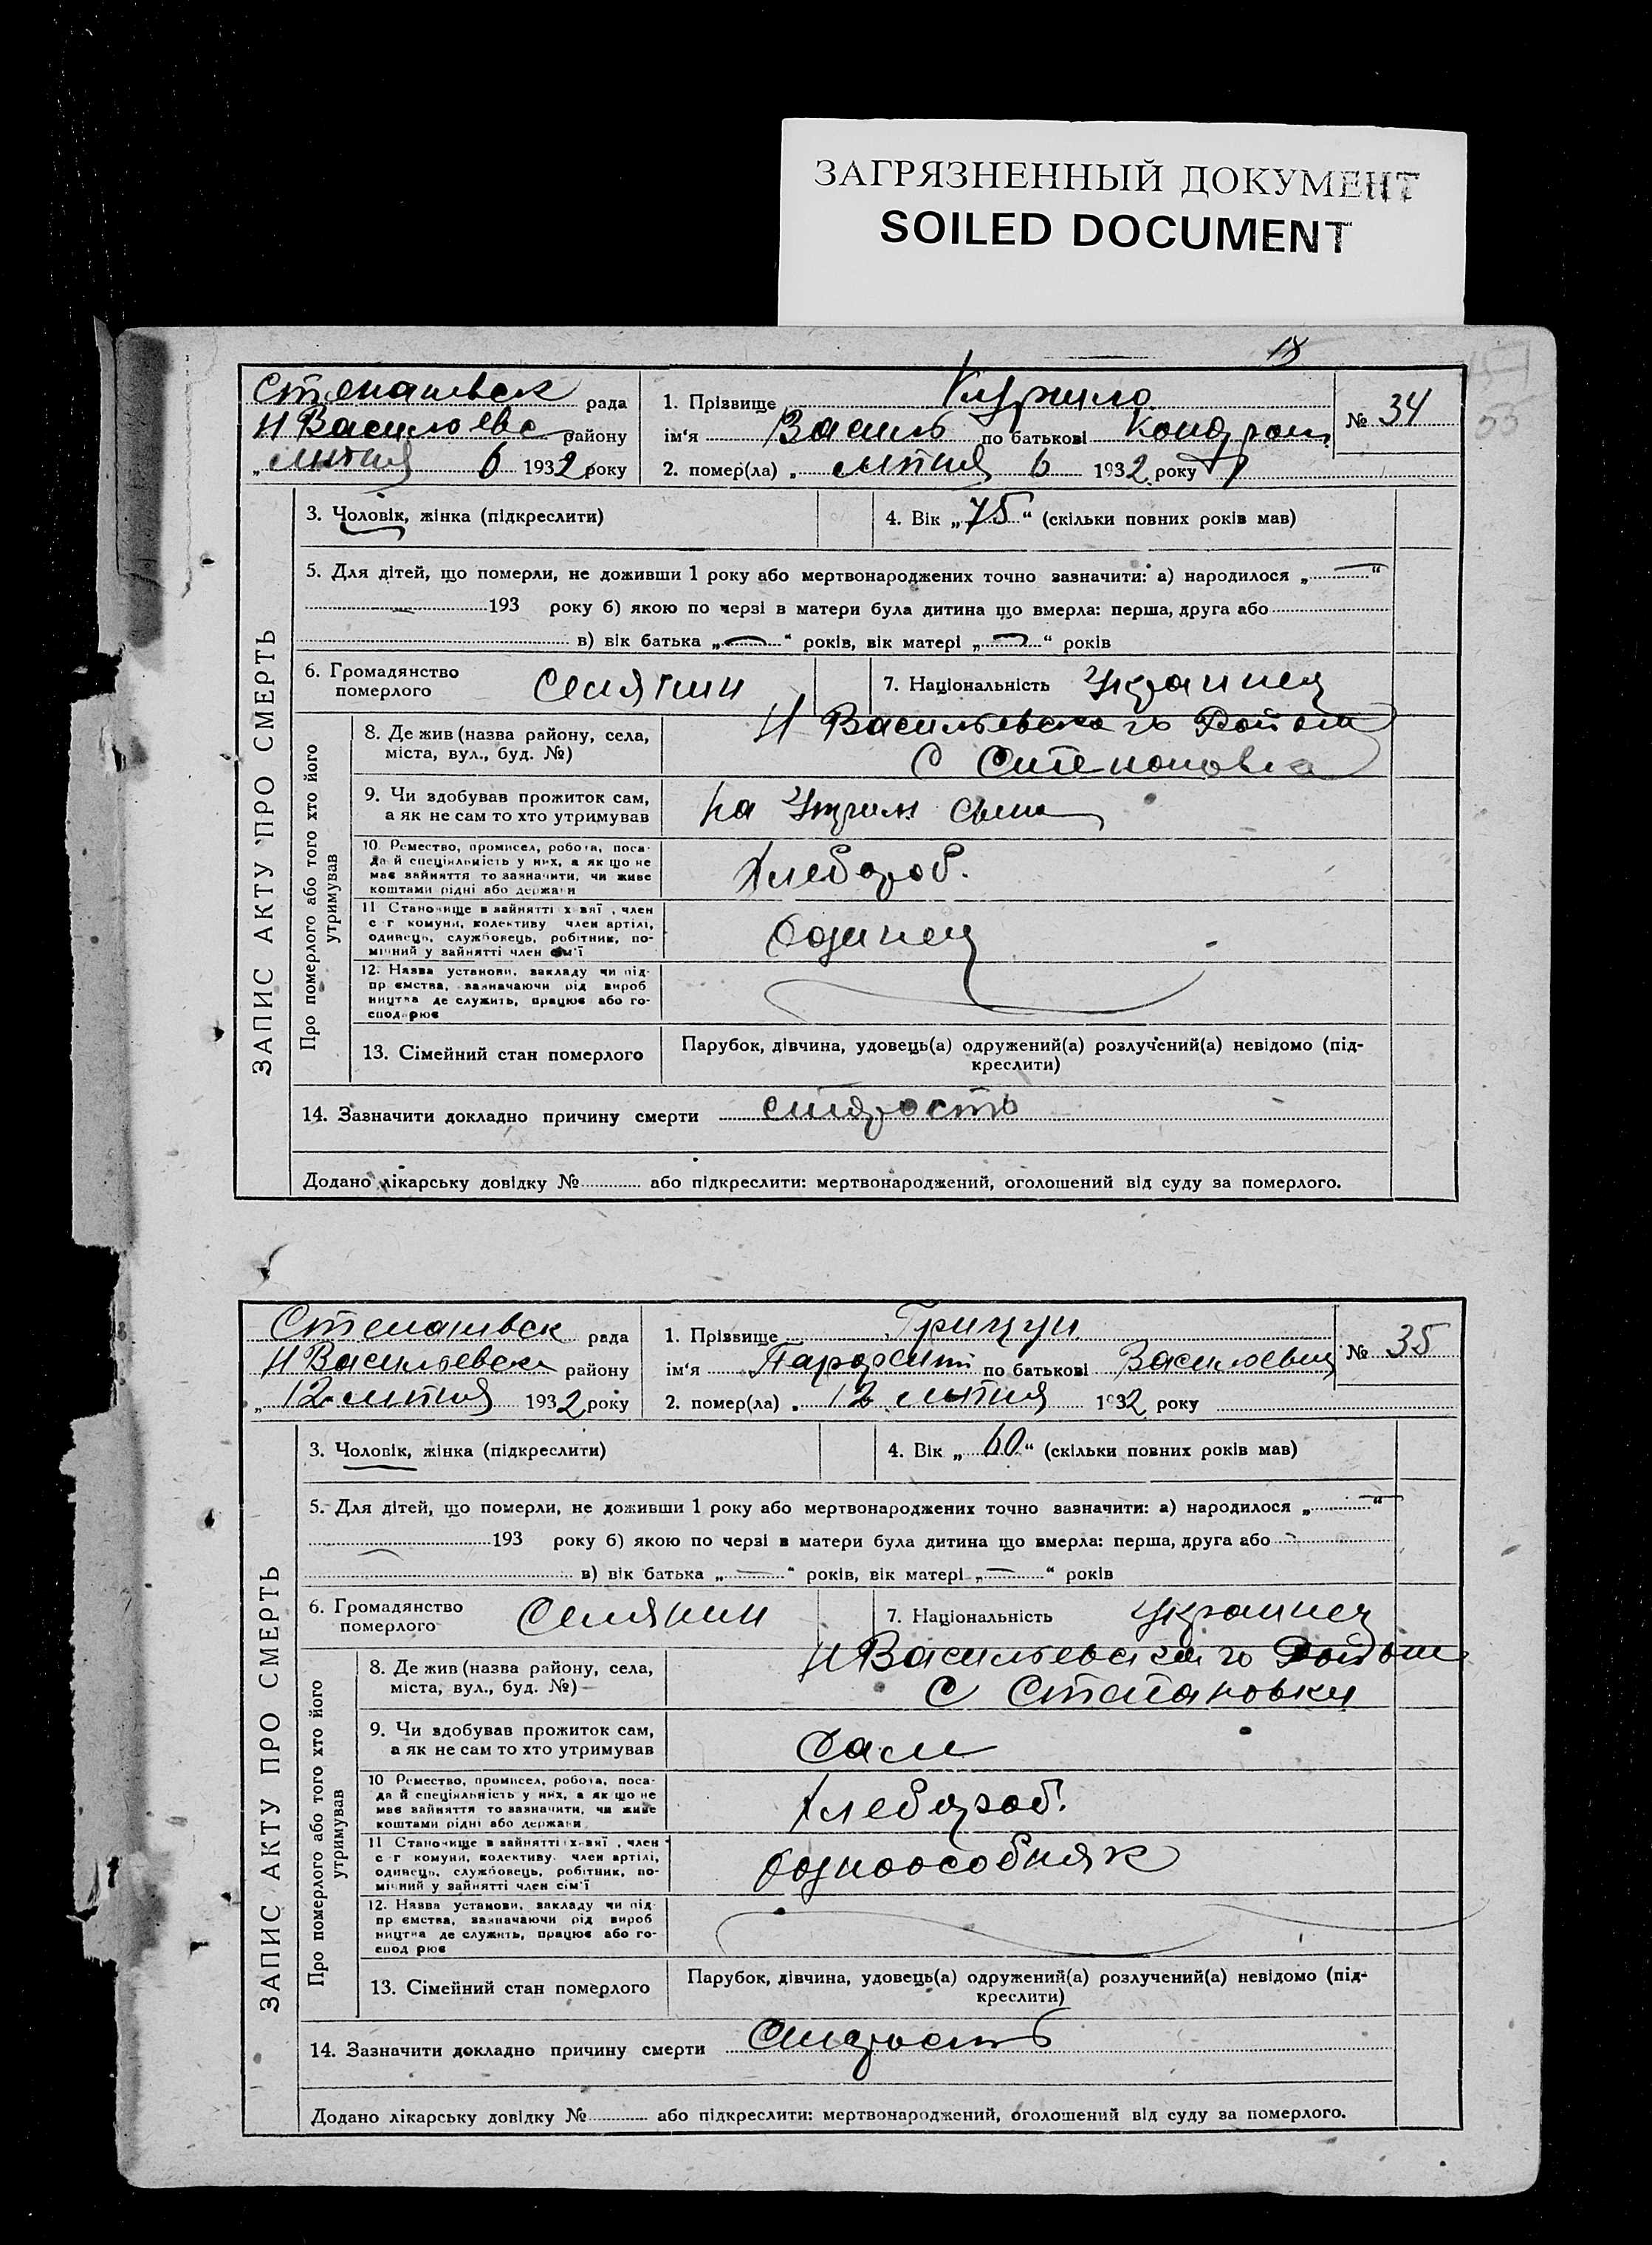 ЗАГРЯЗНЕННЫЙ ДОКУМЕНТ
SOILED DOCUMENT
18
рада
Н Васильевс району
липня 6 1932 року
1. Прізвище Курило
ім'я Василь по батькові Кондрат
2. помер(ла) „ липня 6 1932 року
№ 34
ЗАПИС АКТУ ПРО СМЕРТЬ
3. Чоловік, жінка (підкреслити)
4. Вік „75“ (скільки повних років мав)
5. Для дітей, що померли, не доживши 1 року або мертвонароджених точно зазначити: а) народилося „ “
193 року б) якою по черзі в матери була дитина що вмерла: перша, друга або
в) вік батька „ “ років, вік матері „ “ років
6. Громадянство
померлого
Селянин
7. Національність Украинец
Про померлого або того хто його
утримував
8. Де жив (назва району, села,
міста, вул., буд. №)
Н Васильевского
С Степановка
9. Чи здобував прожиток сам,
а як не сам то хто утримував
на Утрим сына
10. Ремество, промисел, робота, поса-
да й спеціяльність у них, а як що не
має зайняття то зазначити, чи живе
коштами рідні або держави
Хлебороб.
11 Становище в зайнятті х-зяї , член
с г комуни, колективу член артілі,
одинець, службовець, робітник, по-
мічний у зайнятті член сім'ї
Одинец
12. Назва установи, закладу чи під-
пр ємства, зазначаючи рід вироб
ництва де служить, працює або го-
сподарює
13. Сімейний стан померлого
Парубок, дівчина, удовець(а) одружений(а) розлучений(а) невідомо (під-
креслити)
14. Зазначити докладно причину смерти старость
Додано лікарську довідку № або підкреслити: мертвонароджений, оголошений від суду за померлого.
рада
Н Васильевск району
„ 12 липня 1932 року
1. Прізвище Грицун
ім'я по батькові Васильевич
2. помер(ла) „ 12 липня 1932 року
№ 35
ЗАПИС АКТУ ПРО СМЕРТЬ
3. Чоловік, жінка (підкреслити)
4. Вік „60“ (скільки повних років мав)
5. Для дітей, що померли, не доживши 1 року або мертвонароджених точно зазначити: а) народилося „ “
193 року б) якою по черзі в матери була дитина що вмерла: перша, друга або
в) вік батька „ “ років, вік матері „ “ років
6. Громадянство
померлого
Селянин
7. Національність Украинец
Про померлого або того хто його
утримував
8. Де жив (назва району, села,
міста, вул., буд. №)
Н Васильевского
С Степановки
9. Чи здобував прожиток сам,
а як не сам то хто утримував
Сам
10 Ремество, промисел, робота, поса-
да й спеціяльність у них, а як що не
має зайняття то зазначити, чи живе
коштами рідні або держави
Хлебороб.
11 Становище в зайнятті х-зяї , член
с г комуни, колективу. член артілі,
одинець, службовець, робітник, по-
мічний у зайнятті член сім'ї
Одноособняк
12. Назва установи, закладу чи під
пр ємства, зазначаючи рід вироб
ництва де служить, працює або го-
спод рює
13. Сімейний стан померлого
Парубок, дівчина, удовець(а) одружений(а) розлучений(а) невідомо (під-
креслити)
14. Зазначити докладно причину смерти Старость
Додано лікарську довідку № або підкреслити: мертвонароджений, оголошений від суду за померлого.